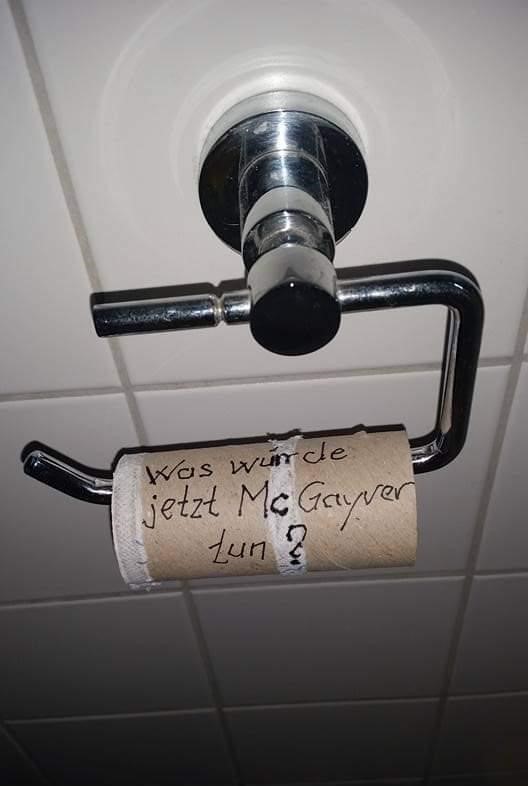 Was würde
jetzt McGayver
tun?